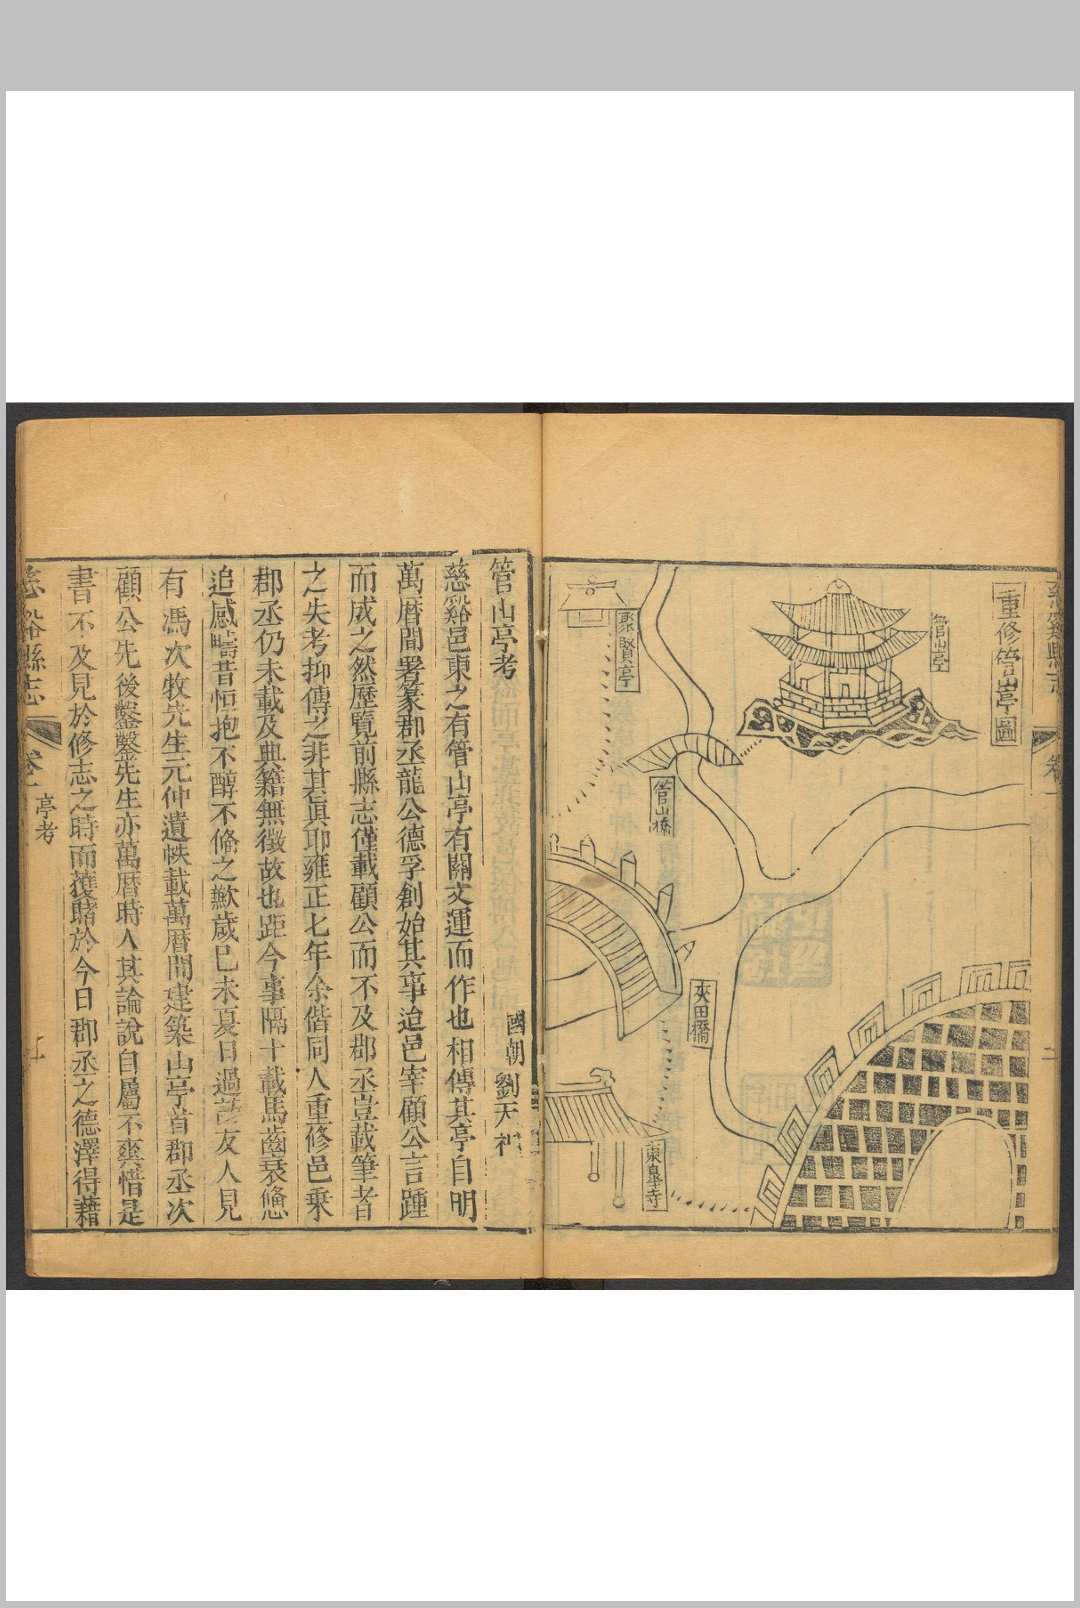 慈谿縣志
卷一
重修管山亭圖
管山亭
聚賢亭
管山橋
夾田橋
東皐寺
管山亭考
國朝劉天相
慈谿邑東之有管山亭有關文運而作也相傳其亭自明
萬曆間署篆郡丞龍公德孚創始其事迨邑宰顧公言踵
而成之然歷覽前縣志僅載顧公而不及郡丞豈載筆者
之失考抑傳之非其眞耶雍正七年余偕同人重修邑乘
郡丞仍未載及典籍無徵故也距今事隔十載馬齒衰憊
追感疇昔恒抱不醇不俻之歎歲巳未夏日過訪友人見
有馮次牧先生元仲遺帙載萬曆間建築山亭首郡丞次
顧公先後鑿鑿先生亦萬曆時人其論說自屬不爽惜是
書不及見於修志之時而獲賭於今日郡丞之德澤得藉
慈谿縣志
卷一
亭考